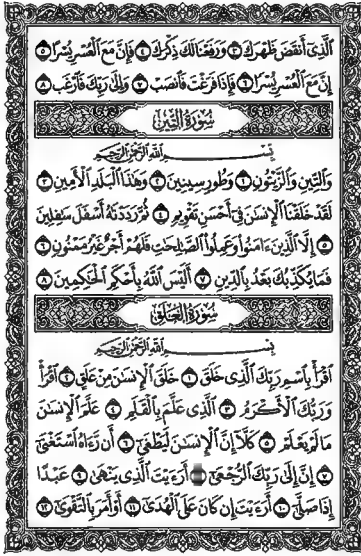 ٱلَّذِىٓ أَنقَضَ ظَهْرَكَ ٣ وَرَفَعْنَا لَكَ ذِكْرَكَ ٤ فَإِنَّ مَعَ ٱلْعُسْرِ يُسْرًا ٥
إِنَّ مَعَ ٱلْعُسْرِ يُسْرًا ٦ فَإِذَا فَرَغْتَ فَٱنصَبْ ٧ وَإِلَىٰ رَبِّكَ فَٱرْغَب ٨
سُورَةُ التِّينِ
بِسْمِ ٱللَّهِ ٱلرَّحْمَٰنِ ٱلرَّحِيمِ
وَٱلتِّينِ وَٱلزَّيْتُونِ ١ وَطُورِ سِينِينَ ٢ وَهَٰذَا ٱلْبَلَدِ ٱلْأَمِينِ ٣
لَقَدْ خَلَقْنَا ٱلْإِنسَٰنَ فِىٓ أَحْسَنِ تَقْوِيمٍ ٤ ثُمَّ رَدَدْنَٰهُ أَسْفَلَ سَٰفِلِينَ
٥ إِلَّا ٱلَّذِينَ ءَامَنُوا۟ وَعَمِلُوا۟ ٱلصَّٰلِحَٰتِ فَلَهُمْ أَجْرٌ غَيْرُ مَمْنُونٍ ٦
فَمَا يُكَذِّبُكَ بَعْدُ بِٱلدِّينِ ٧ أَلَيْسَ ٱللَّهُ بِأَحْكَمِ ٱلْحَٰكِمِينَ ٨
سُورَةُ العَلَقِ
بِسْمِ ٱللَّهِ ٱلرَّحْمَٰنِ ٱلرَّحِيمِ
ٱقْرَأْ بِٱسْمِ رَبِّكَ ٱلَّذِى خَلَقَ ١ خَلَقَ ٱلْإِنسَٰنَ مِنْ عَلَقٍ ٢ ٱقْرَأْ
وَرَبُّكَ ٱلْأَكْرَمُ ٣ ٱلَّذِى عَلَّمَ بِٱلْقَلَمِ ٤ عَلَّمَ ٱلْإِنسَٰنَ
مَا لَمْ يَعْلَمْ ٥ كَلَّآ إِنَّ ٱلْإِنسَٰنَ لَيَطْغَىٰٓ ٦ أَن رَّءَاهُ ٱسْتَغْنَىٰٓ
٧ إِنَّ إِلَىٰ رَبِّكَ ٱلرُّجْعَىٰٓ أَرَءَيْتَ ٱلَّذِى يَنْهَىٰ ٩ عَبْدًا
إِذَا صَلَّىٰٓ ١٠ أَرَءَيْتَ إِن كَانَ عَلَى ٱلْهُدَىٰٓ ١١ أَوْ أَمَرَ بِٱلتَّقْوَىٰٓ ١٢